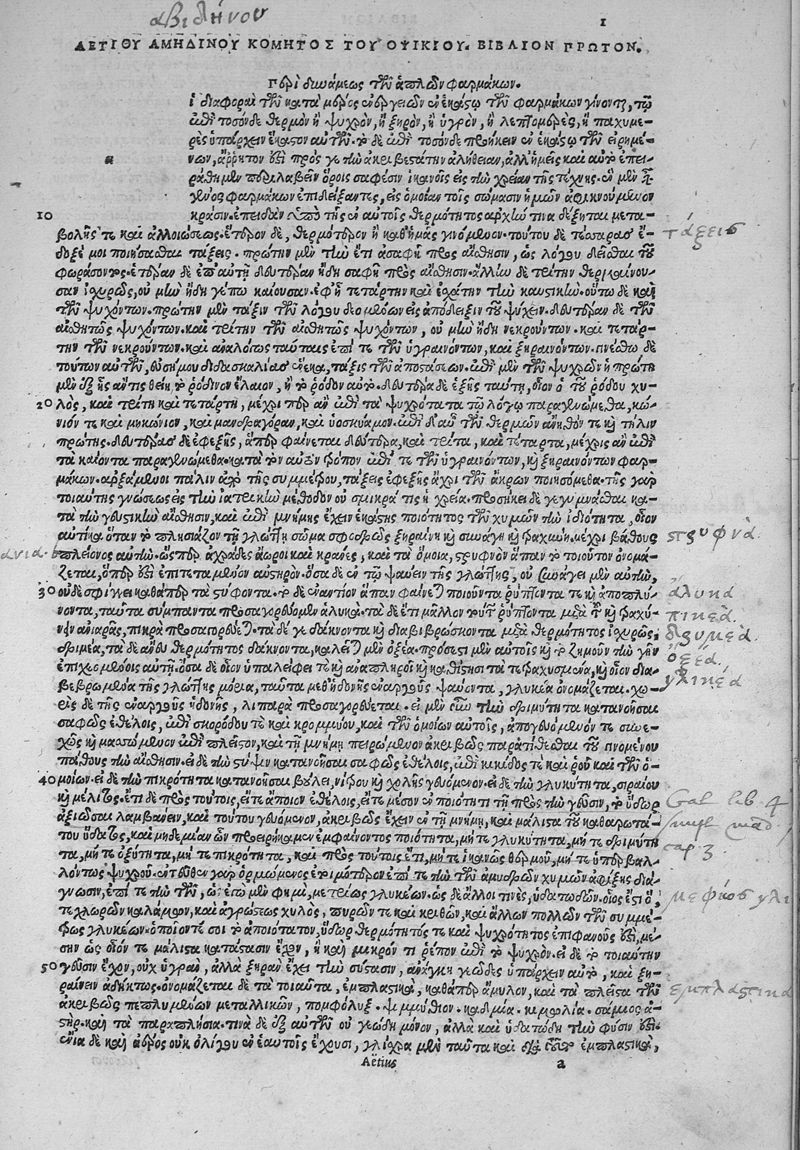 αβιδηνου
1
ΑΕΤΙΟΥ ΑΜΗΔΙΝΟΥ ΚΟΜΗΤΟΣ ΤΟΥ ΟΨΙΚΙΟΥ. ΒΙΒΛΙΟΝ ΠΡΩΤΟΝ.
Περὶ δυνάμεως τῶν ἁπλῶν φαρμάκων.
ἱ διαφοραὶ τῶν κατὰ μέρος ἐνεργειῶν ἐν ἑκάστῳ τῶν φαρμάκων γίνονται, τῷ
ἐπὶ τοσόνδε θερμὸν ἢ ψυχρὸν, ἢ ξηρὸν, ἢ ὑγρὸν, ἢ λεπτομερὲς, ἢ παχυμε-
ρὲς ὑπάρχειν ἕκαστον αὐτῶν. τὸ δὲ ἐπὶ τοσόνδε ἐν ἑκάστῳ τῶν εἰρημέ-
νων, ἄρρητον ἐστὶ πρός γε τὴν ἀκριβεστάτην ἀλήθειαν, ἀλλ' ἡμεῖς καὶ αὐτὸ ἐπει-
a
ράθημεν περιλαβεῖν ὅροις σαφέσιν ἱκανοῖς εἰς τὴν χρείαν τῆς τέχνης. ἓν μὲν
γένος φαρμάκων ἐπιδείξαντες, εἰς ὁμοίαν τοῖς σώμασιν ἡμῶν ἀφικνούμενον
10
κρᾶσιν. ἐπειδὰν ὑπὸ τῆς ἐν αὐτοῖς θερμότητος ἀρχήν τινα δέξηται μετα-
βολῆς τε καὶ ἀλλοιώσεως. ἕτερον δὲ, θερμότερον ἢ καθ' ἡμᾶς γινόμενον. τούτου δὲ τέσσαρας ἔ-
τάξεις
δοξέ μοι ποιήσασθαι τάξεις. πρώτην μὲν τὴν ἔτι ἀσαφῆ πρὸς αἴσθησιν, ὡς λόγου δεῖσθαι τοῦ
φωράσοντος. ἑτέραν δὲ ἐπ' αὐτῇ δευτέραν ἤδη σαφῆ πρὸς αἴσθησιν. ἄλλην δὲ τρίτην θερμαίνου-
σαν ἰσχυρῶς, οὐ μὴν ἤδη γέπω καίουσαν. ἐφ' ᾗ τετάρτην καὶ ἐσχάτην τὴν καυστικήν. οὕτω δὲ καὶ
τῶν ψυχόντων. πρώτην μὲν τάξιν τῶν λόγου δεομένων εἰς ἀπόδειξιν τοῦ ψύχειν. δευτέραν δὲ τῶν
αἰσθητῶς ψυχόντων. καὶ τρίτην τῶν αἰσθητῶς ψυχόντων, οὐ μὴν ἤδη νεκρούντων. καὶ τετάρ-
την τῶν νεκρούντων. καὶ ἀναλόγως ταύταις ἐπί τε τῶν ὑγραινόντων, καὶ ξηραινόντων.
τούτων αὐτῶν, εὐσήμου διδασκαλίας ἕνεκα, τάξις τῶν ἀποστάσεων. ἐπὶ μὲν τῶν ψυχρῶν ἡ πρώτη
μὲν ἐξ ἧς ἄν τις θείη τὸ ῥόδινον ἔλαιον, ἢ τὸ ῥόδον αὐτό. δευτέρα δὲ ἑξῆς ταύτῃ, οἷον ὁ τοῦ ῥόδου χυ-
20
λὸς, καὶ τρίτη καὶ τετάρτη, μέχρι περ ἂν ἐπὶ τὰ ψυχρότατα τῷ λόγῳ παραγενώμεθα, κώ-
νιόν τε καὶ μηκώνιον, καὶ μανδραγόραν, καὶ ὑοσκύαμον. ἐπὶ δ' αὖ τῶν θερμῶν ἄνηθόν τε καὶ τῆλιν
πρώτης. δευτέρας δ' ἐφεξῆς, ἅπερ φαίνεται δεύτερα, καὶ τρίτα, καὶ τέταρτα, μέχρις ἂν ἐπὶ
τὰ καίοντα παραγενώμεθα. κατὰ τὸν αὐτὸν τρόπον ἐπί τε τῶν ὑγραινόντων, καὶ ξηραινόντων φαρ-
μάκων. ἀρξάμενοι πάλιν ἀπὸ τῆς συμμέτρου, τὰς ἐφεξῆς ἄχρι τῶν ἄκρων ποιησόμεθα. τῆς γὰρ
τοιαύτης γνώσεως εἰς τὴν ἰατρικὴν μέθοδον οὐ σμικρά τις ἡ χρεία. προσήκει δὲ γεγυμνάσθαι κα-
τὰ τὴν γευστικὴν αἴσθησιν, καὶ ἐπὶ μνήμης ἔχειν ἑκάστης ποιότητος τῶν χυμῶν τὴν ἰδιότητα, οἷον
αὐτίκα ὅταν τὸ πλησιάζον τῇ γλώττῃ σῶμα σφοδρῶς ξηραίνῃ καὶ συνάγῃ καὶ τραχύνῃ, μέχρι βάθους
στρυφνὰ
πλείονος αὐτὴν. ὥσπερ ἀχράδες ἄωροι καὶ κράνιες, καὶ τὰ ὅμοια, στρυφνὸν ἅπαν τὸ τοιοῦτον ὀνομά-
ζεται, ὅπερ ἐστὶν ἐπιτεταμένον αὐστηρόν. ὅσα δὲ ἐν τῷ ψαύειν τῆς γλώττης, οὐ συνάγει μὲν αὐτὴν,
30
οὐδὲ σφίγγει καθάπερ τὰ στύφοντα. τὸ δὲ ἐναντίον ἅπαν φαίνεται ποιοῦντα ῥύπτοντά τε καὶ ἀποπλύ-
αλυκα
νοντα, ταῦτα σύμπαντα προσαγορεύομεν ἁλυκά. τὰ δὲ ἔτι μᾶλλον τούτων ῥύπτοντα μετὰ τοῦ καὶ τραχύ-
πικρὰ
νειν ἀνιαρῶς, πικρὰ προσαγορεύεται. τὰ δέ γε δάκνοντα καὶ διαβιβρώσκοντα μετὰ θερμότητος ἰσχυρῶς,
δριμέα
δριμέα, τὰ δὲ ἄνευ θερμότητος δάκνοντα, καλεῖται μὲν ὀξέα. πρόσεστι μὲν αὐτοῖς καὶ τὸ ζυμοῦν τὴν γῆν
ὀξέα
ἐπιχεομένοις αὐτῇ. ὅσα δὲ οἷον ὑπαλείφει τε καὶ ἀναπληροῖ καὶ καθίστησι τὰ τετραχυσμένα, καὶ οἷον δια-
γλυκέα
βεβρωμένα τῆς γλώττης μόρια, ταῦτα μεθ' ἡδονῆς ἐναργοῦς ψαύοντα, γλυκέα ὀνομάζεται. χω-
ρὶς δὲ τῆς ἐναργοῦς ἡδονῆς, λιπαρὰ προσαγορεύεται. εἰ μὲν οὖν τὴν δριμύτητα κατανοῆσαι
σαφῶς ἐθέλοις, ἐπὶ σκορόδου τε καὶ κρομμύου, καὶ τῶν ὁμοίων αὐτοῖς, ἀπογευόμενόν τε συνε-
χῶς καὶ μασσώμενον ἐπὶ πλεῖστον, καὶ τῇ μνήμῃ πειρώμενον ἀκριβῶς παρατίθεσθαι τοῦ γινομένου
πάθους τὴν αἴσθησιν. εἰ δὲ τὴν στύψιν κατανοῆσαι σαφῶς ἐθέλοις, ἐπὶ κηκῖδός τε καὶ ῥοῦ καὶ τῶν ὁ-
40
μοίων. εἰ δὲ τὴν πικρότητα κατανοῆσαι βούλει, νίτρου καὶ χολῆς γευόμενον. εἰ δὲ τὴν γλυκύτητα, σιραίου
καὶ μέλιτος. ἔτι δὲ πρὸς τούτοις, εἴτε ἄποιον ἐθέλοις, εἴτε μέσον ἐν ποιότητι τῇ πρὸς τὴν γεῦσιν, τὸ ὕδωρ
Gal lib 4
ἀξιῶσαι λαμβάνειν, καὶ τούτου γευόμενον, ἀκριβῶς ἔχειν ἐν τῇ μνήμῃ, καὶ μάλιστα τοῦ καθαρωτά-
του ὕδατος, καὶ μηδεμίαν ὧν προειρήκαμεν ἐμφαίνοντος ποιότητα, μήτε γλυκύτητα, μήτε δριμύτη-
cap 3
τα, μήτε ὀξύτητα, μήτε πικρότητα, καὶ πρὸς τούτοις ἔτι, μήτε ἱκανῶς θερμοῦ, μήτε ὑπερβαλ-
λόντως ψυχροῦ. ἐντεῦθεν γὰρ ὁρμώμενος ἐπί τε τὴν τῶν ἀμυδρῶν χυμῶν ἀφίξῃ διά-
γνωσιν, ἐπί τε τὴν τῶν, ὡς ἐγὼ μὲν φημὶ, μετρίως γλυκέων. ὡς δὲ ἄλλοι τινὲς, ὑδατωδῶν. οἷός ἐστι ὅ
τε χλωρῶν καλάμων, καὶ ἀγρώστεως χυλὸς, πυρῶν τε καὶ κριθῶν, καὶ ἄλλων πολλῶν τῶν συμμέ-
τρως γλυκέων. ὁποῖόν τέ σοι τὸ ἀποίοτατον, ὕδωρ θερμότητός τε καὶ ψυχρότητος ἐπιφανοῦς ἐστι, μέ-
σην ὡς οἷόν τε μάλιστα κατάστασιν ἔχον, ἢ καὶ μικρόν τι ῥέπον ἐπὶ τὸ ψυχρόν. εἰ δὲ τὸ τοιαύτην
50
γεῦσιν ἔχον, οὐχ ὑγρὰν, ἀλλὰ ξηρὰν ἔχει τὴν σύστασιν, ἀνάγκη γεῶδες ὑπάρχειν αὐτὸ, καὶ ξη-
ραίνειν ἀδήκτως. ὀνομάζεται δὲ τὰ τοιαῦτα, ἐμπλαστικὰ, καθάπερ ἄμυλον, καὶ τὰ πλεῖστα τῶν
εμπλαστικα
ἀκριβῶς πεπλυμένων μεταλλικῶν, πομφόλυξ. ψιμμύθιον. καδμία. κιμωλία. σάμιος ἀ-
στήρ. καὶ τὰ παραπλήσια. τινὰ δὲ ἐξ αὐτῶν οὐ γεώδη μόνον, ἀλλὰ καὶ ὑδατώδη τὴν φύσιν ἐστὶν
ἔνια δὲ καὶ ἀέρος οὐκ ὀλίγον ἐν ἑαυτοῖς ἔχουσι, γλίσχρα μὲν ταῦτα καὶ διὰ τοῦτο ἐμπλαστικὰ,
Aëtius
a